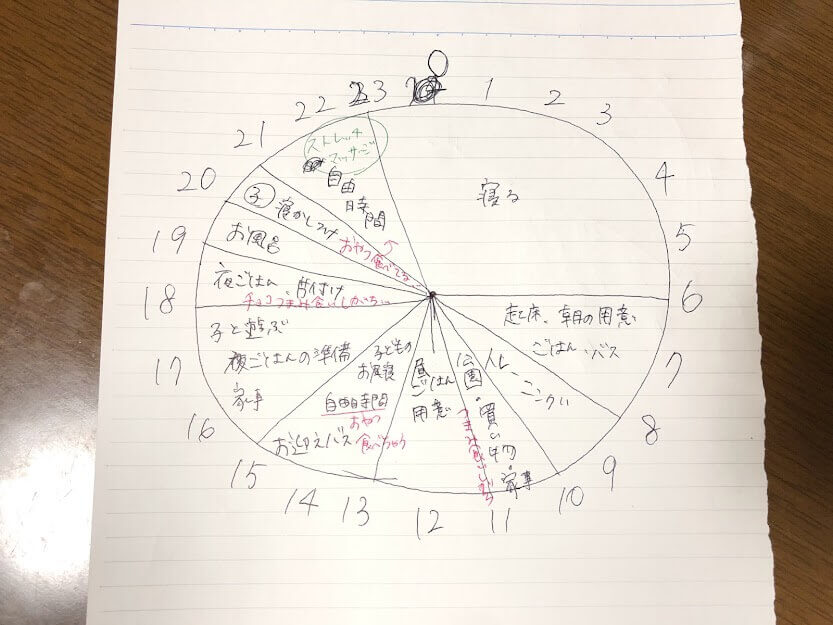 1
2
3
4
5
6
7
8
9
10
11
12
13
14
15
16
17
18
19
20
21
22
23
寝る
起床、朝の用意
ごはん・バス
公園・買い物・家事
つまみ食いしがち
昼ごはん
用意
子どもの
お昼寝
自由時間
おやつ
食べちゃう
お迎えバス
子と遊ぶ
夜ごはんの準備
家事
夜ごはん、片付け
チョコつまみ食いしがち
お風呂
子 寝かしつけ
おやつ食べてる
ストレッチ
マッサージ
自由
時間